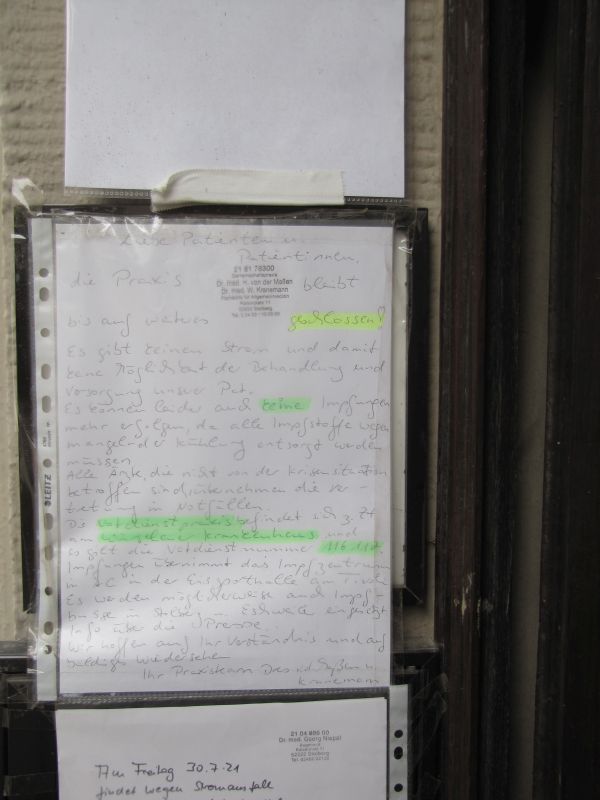 Liebe Patienten u.
Patientinnen,
21 81 76300
Gemeinschaftspraxis
Dr. med. H. von der Maßen
Dr. med. W. Kranemann
die Praxis bleibt
bis auf weiteres geschlossen!
Es gibt keinen Strom und damit
keine Möglichkeit der Behandlung und
Versorgung unserer Pat.
Es können leider auch keine Impfungen
mehr erfolgen, da alle Impfstoffe wegen
mangelnder Kühlung entsorgt werden
müssen.
Alle Ärzte, die nicht von der Krisensituation
betroffen sind, übernehmen die Ver-
tretung in Notfällen.
Die Notdienstpraxis befindet sich z. Zt
am Würselener Krankenhaus und
es gilt die Notdienstnummer 116 117.
Impfungen übernimmt das Impfzentrum
in AC in der Eissporthalle am Tivoli
Es werden möglicherweise auch Impf-
busse in Stolberg u. Eschweiler eingesetzt
Info über die Presse.
Wir hoffen auf Ihr Verständnis und auf
baldiges Wiedersehen
Ihr Praxisteam Dres v.d. Maßen u.
Kranemann
LEITZ
21 04 800 00
Dr. med. Georg Niepel
Am Freitag 30.7.21
findet wegen Stromausfall